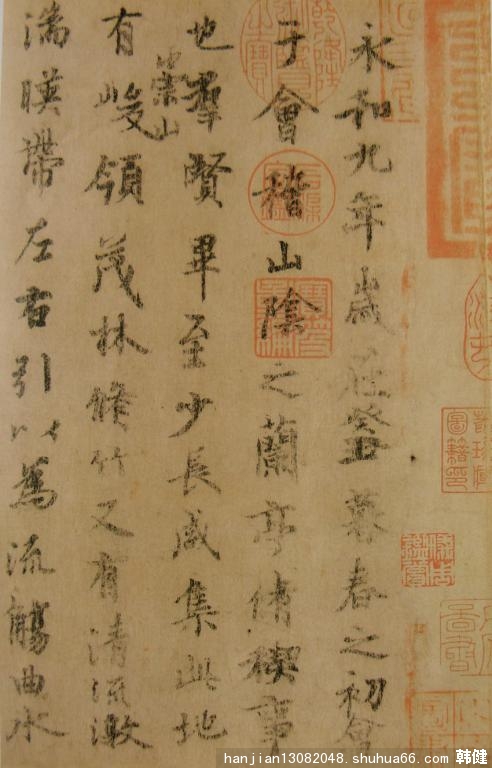 永和九年歲在癸丑暮春之初會
于會稽山陰之蘭亭脩禊事
也羣賢畢至少長咸集此地
有崇山峻領茂林脩竹又有清流激
湍暎帶左右引以為流觴曲水
hanjian13082048.shuhua66.com 韩健